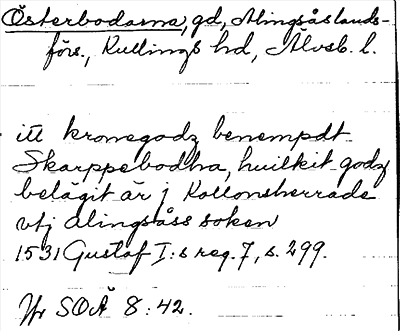 Österbodarna, gd, Alingsås lands-
förs., Kullings hd, Älvsb. l.
itt kronegodz benempdt
Skarppebodha, huilkit godz
belägit är j Kollonsherrade
vtj Alingsåss soken
1531 Gustaf I:s reg. 7, s. 299.
Jfr SOÄ 8:42.